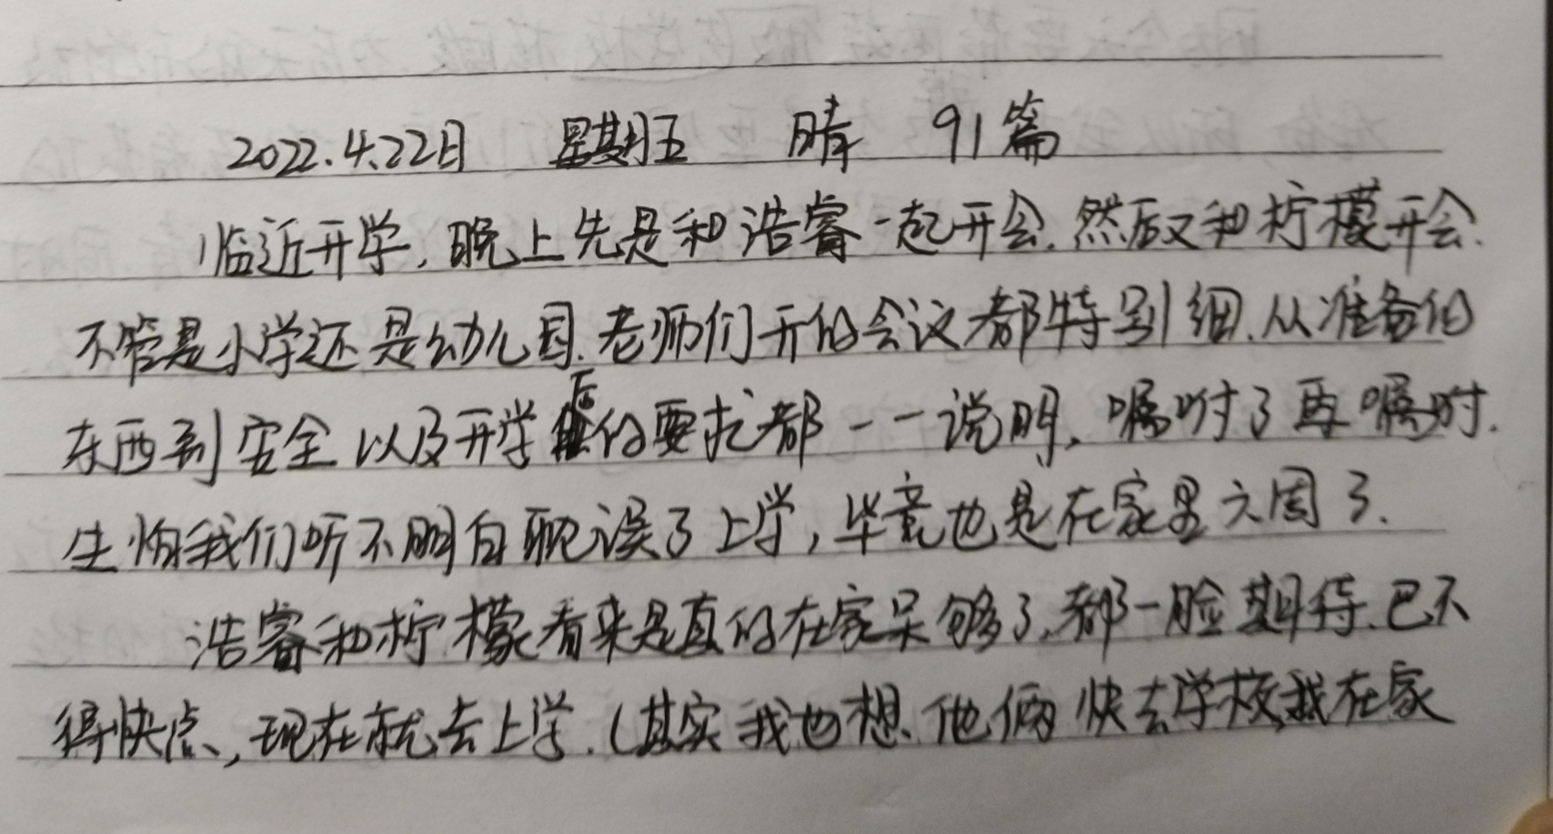 2022.4.22日 星期五 晴 91篇
临近开学,晚上先是和浩睿一起开会.然后又和柠檬开会.
不管是小学还是幼儿园.老师们开的会议都特别细.从准备的
东西到安全以及开学后的要求都一一说明、嘱咐了再嘱咐.
生怕我们听不明白耽误了上学,毕竟也是在家里六周了.
浩睿和柠檬看来是真的在家呆够了.都一脸期待.巴不
得快点,现在就去上学.(其实我也想.他俩快去学校,我在家